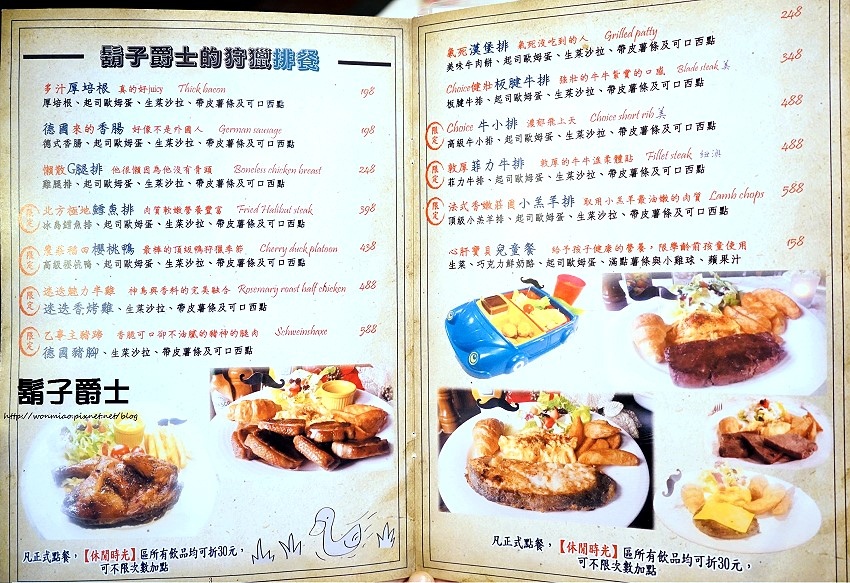 鬍子爵士的狩獵排餐
多汁厚培根 真的好juicy Thick bacon 198
厚培根、起司歐姆蛋、生菜沙拉、帶皮薯條及可口西點
德國來的香腸 好像不是外國人 German sausage 198
德式香腸、起司歐姆蛋、生菜沙拉、帶皮薯條及可口西點
懶散G腿排 他很懶因為他沒有骨頭 Boneless chicken breast 248
雞腿排、起司歐姆蛋、生菜沙拉、帶皮薯條及可口西點
限定 北方極地鱈魚排 肉質軟嫩營養豐富 Fried Halibut steak 398
冰島鱈魚排、起司歐姆蛋、生菜沙拉、帶皮薯條及可口西點
限定 農莊稻田櫻桃鴨 最棒的頂級鴨狩獵季節 Cherry duck platoon 438
高級櫻桃鴨、起司歐姆蛋、生菜沙拉、帶皮薯條及可口西點
限定 迷迭魅力半雞 神鳥與香料的完美融合 Rosemary roast half chicken 488
迷迭香烤雞、生菜沙拉、帶皮薯條及可口西點
限定 乙亭主豬蹄 香脆可口卻不油膩的豬神的腿肉 Schweinshaxe 588
德國豬腳、生菜沙拉、帶皮薯條及可口西點
鬍子爵士
http://wonmiao.pixnet.net/blog
凡正式點餐,【休閒時光】區所有飲品均可折30元,
可不限次數加點
氣死漢堡排 氣死沒吃到的人 Grilled patty 248
美味牛肉餅、起司歐姆蛋、生菜沙拉、帶皮薯條及可口西點
Choice健壯板腱牛排 強壯的牛牛紮實的口感 Blade steak 美 348
板腱牛排、起司歐姆蛋、生菜沙拉、帶皮薯條及可口西點
限定 Choice 牛小排 濃郁飛上天 Choice short rib 美 488
高級牛小排、起司歐姆蛋、生菜沙拉、帶皮薯條及可口西點
限定 敦厚菲力牛排 敦厚的牛牛溫柔體貼 Fillet steak 紐澳 488
菲力牛排、起司歐姆蛋、生菜沙拉、帶皮薯條及可口西點
限定 法式香嫩莊園小羔羊排 取用小羔羊最油嫩的肉質 Lamb chops 588
頂級小羔羊排、起司歐姆蛋、生菜沙拉、帶皮薯條及可口西點
心肝寶貝兒童餐 給予孩子健康的營養,限學齡前孩童使用 158
生菜、巧克力鮮奶酪、起司歐姆蛋、滿點薯條與小雞球、蘋果汁
凡正式點餐,【休閒時光】區所有飲品均可折30元,
可不限次數加點